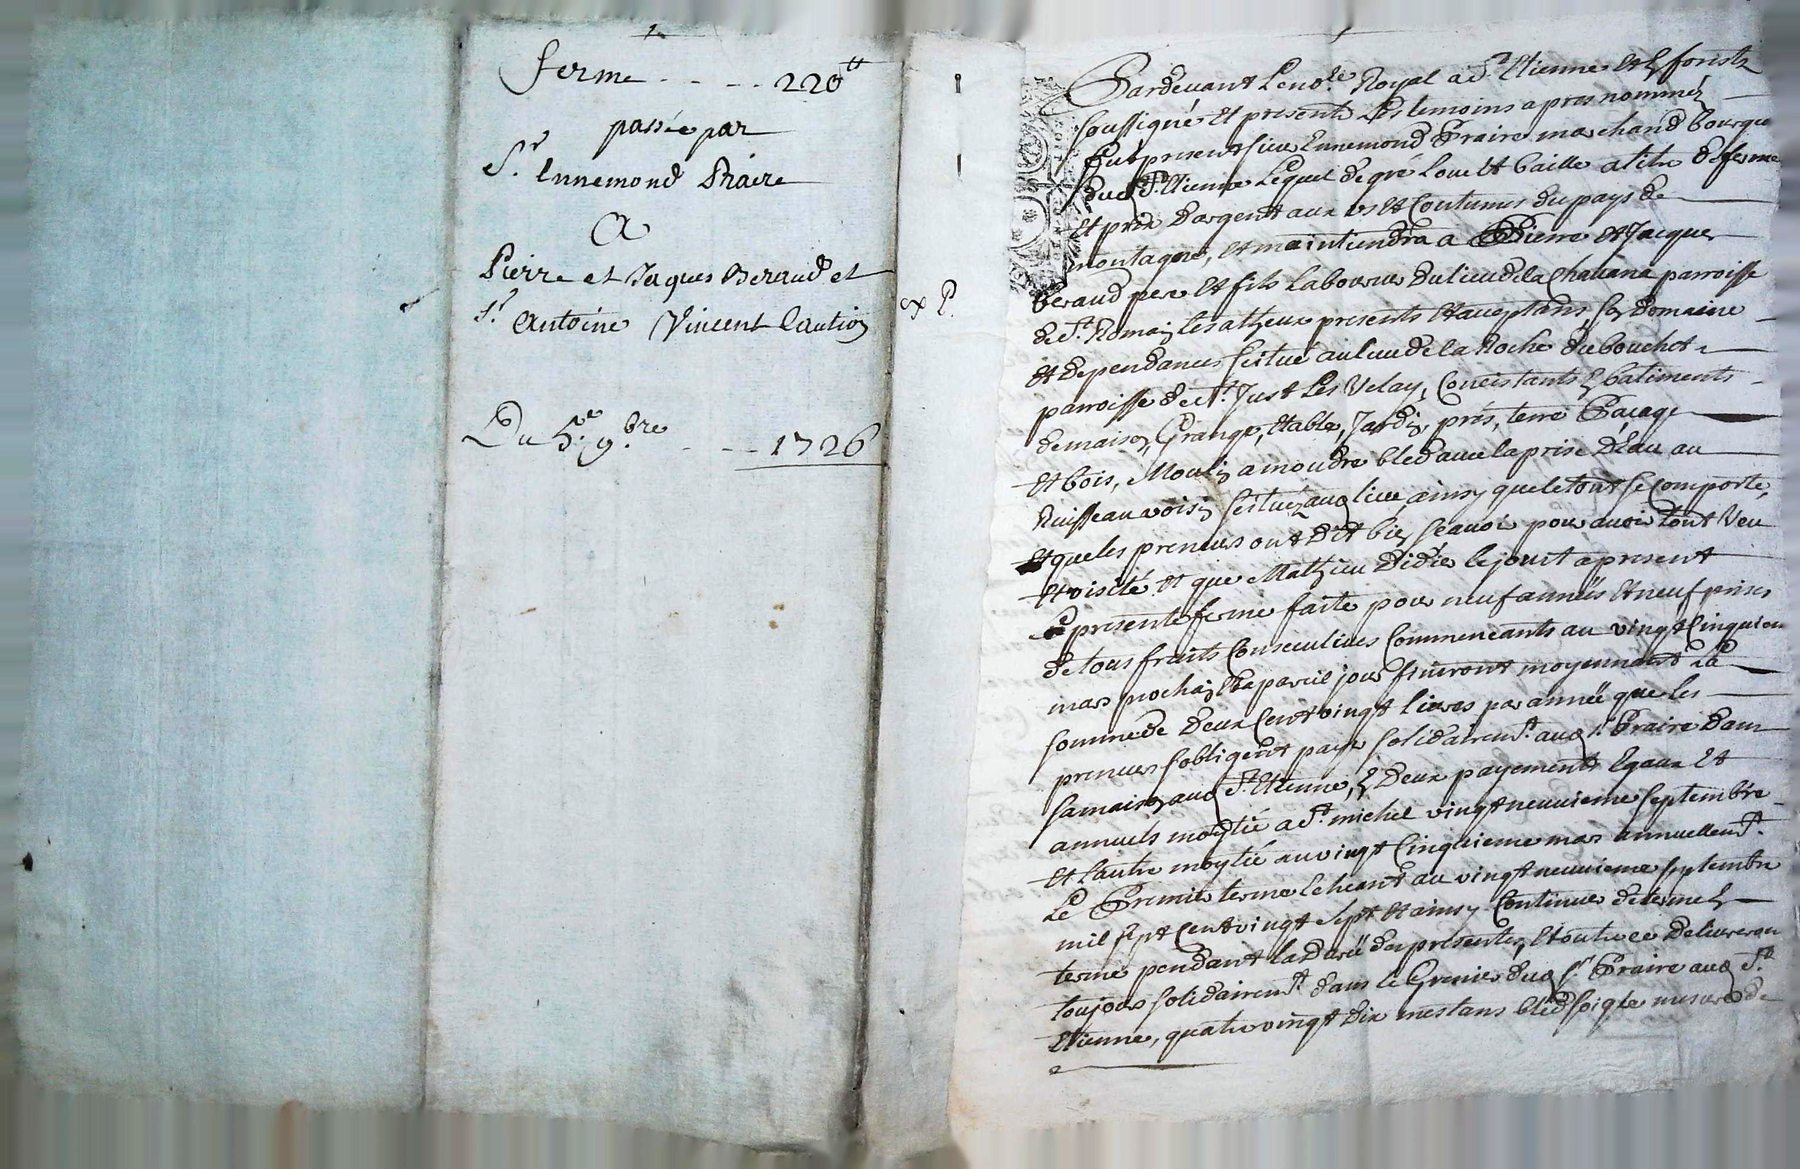 ferme - - - 220 tt
passée par
Sr. Ennemond Praire
A
Pierre et Jaques Beraud et
Sr. Antoine Vincent Caution
Du 5e. 9.bre - - - 1726
Pardevant Le no.re Royal a St. Etienne en forists
soussigné et presents Les temoins apres nommés
fut present sieur Ennemond Praire marchand bourgeo
dud St. Etienne Lequel de gré Loue et baille a titre de ferme
et prix d'argent aux us et Coutumes du pays de
montagne, et maintiendra a Pierre et Jacques
Beraud pere et fils Laboureurs du lieu de la Chavana parroisse
de St. Romain les atheux presents et acceptans, son domaine
et dependances scitué au lieu de la Roche du bouchet
parroisse de St. Just Les Velay, Concistants en batiments
de maison, Grange, Etable, Jardin, prés, terre Pacage
et bois, Moulin a moudre bled avec la prise d'Eau au
Ruisseau voisin scituéz aud lieu, ainsy que le tout se Comporte,
et que les preneurs ont dit bien scavoir pour avoir tout Veu
et visité et que Mathieu Didier le jouit a present
La presente ferme faite pour neuf années et neuf prises
de tous fruits Consecutives Commencants au vingt Cinquiem
mars prochain et a pareil jour finiront moyennant La
somme de Deux Cent vingt livres par année que les
preneurs sobligent payer solidairemt. aud Sr Praire dans
sa maison aud St. Etienne, En Deux payements Egaux Et
annuels moytié a St. michel vingt neuvieme septembre
Et l'autre moytié au vingt Cinquieme mars annuellemt.
Le Premier terme Echeant au vingt neuvieme septembre
mil sept Cent vingt sept et ainsy Continuer de terme En
terme pendant la durée des presentes, Et outre ce Delivreron
toujours solidairemt. dans le Grenier dud Sr. Praire aud St.
Etienne, quatre vingt Dix mestans bled soigle mesure de